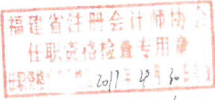 福建省注册会计师协会
任职资格检查专用章
2019
30